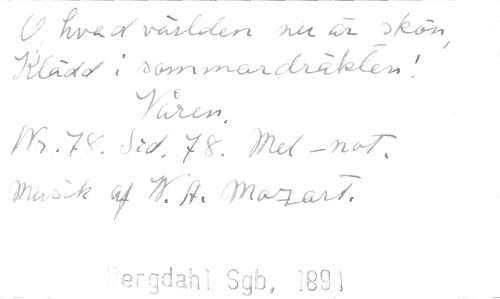 O, hvad världen nu är skön,
Klädd i sommardräkten!
Våren.
Nr. 78. Sid. 78. Mel-not.
Musik af W. A. Mozart.
Bergdahl Sgb, 1891